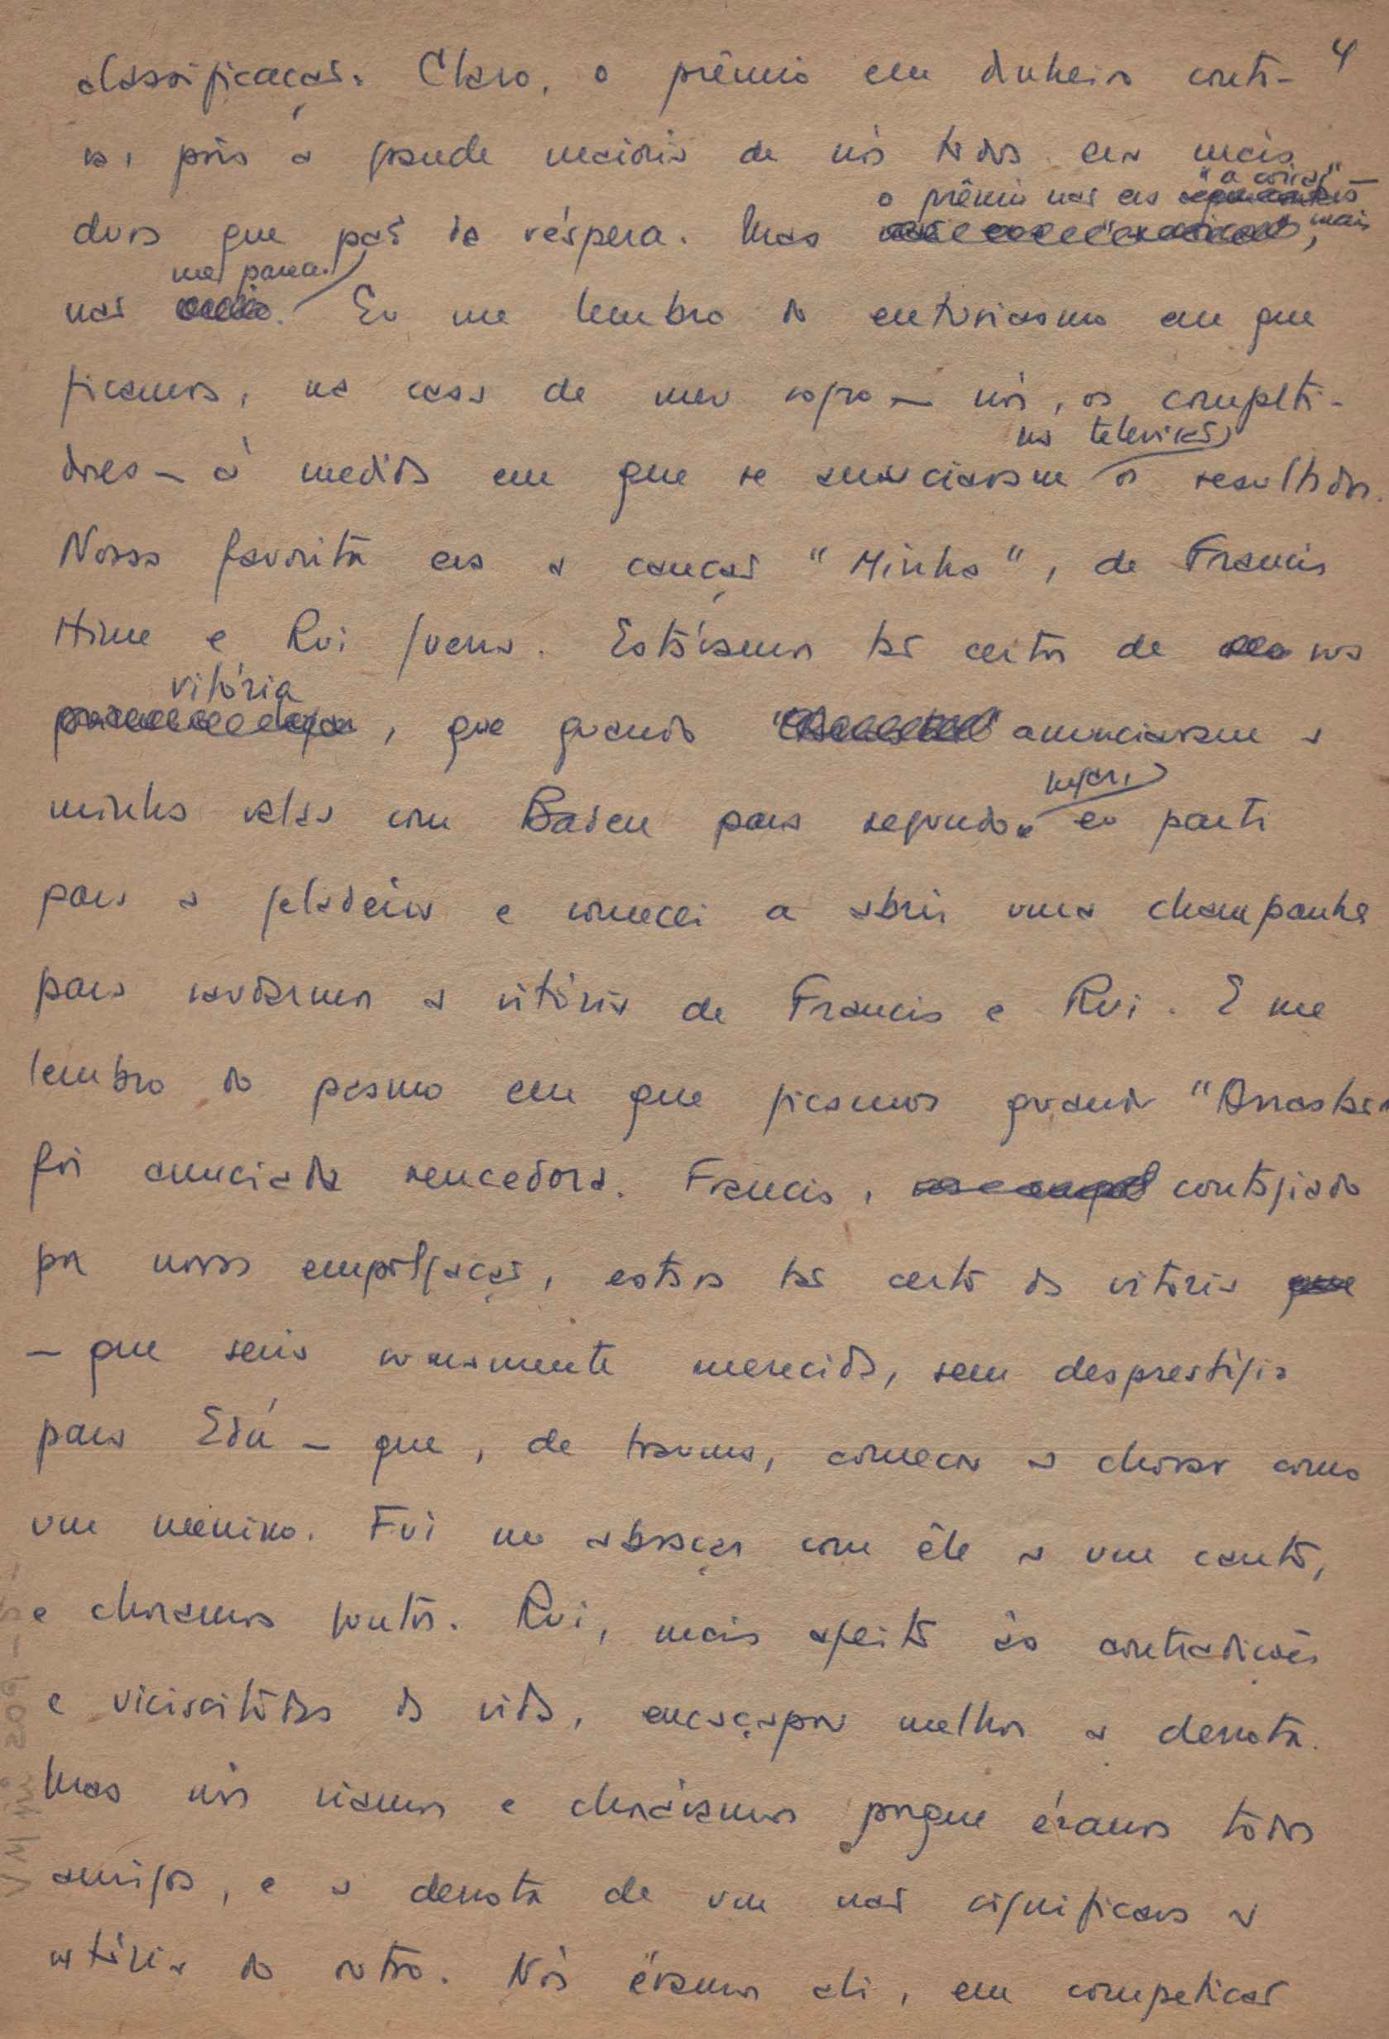 4
classificação. Claro, o prêmio em dinheiro conta-
va, pois a grande maioria de nós todos era mais
o prêmio não era "a coisa" —
duro que pão da véspera. Mas , mais
me parece.
não . Eu me lembro do entusiasmo em que
ficamos, na casa de meu sogro — nós, os competi-
na televisão
dores — à medida em que se anunciavam os resultados.
Nossa favorita era a canção "Minha", de Francis
Hime e Rui Guerra. Estávamos tão certos de sua
vitória
, que quando anunciaram a
lugar,
minha valsa com Baden para segundo eu parti
para a geladeira e comecei a abrir uma champanha
para saudarmos a vitória de Francis e Rui. E me
lembro do pasmo em que ficamos quando "Arrastão
foi anunciada vencedora. Francis, contagiado
por nossa empolgação, estava tão certo da vitória
— que seria imensamente merecida, sem desprestígio
para Edú — que, de trauma, começou a chorar como
um menino. Fui me abraçar com êle a um canto,
e choramos juntos. Rui, mais afeito às contradições
e vicissitudes da vida, encaçapou melhor a derrota.
Mas nós ríamos e chorávamos porque éramos todos
amigos, e a derrota de um não significava a
vitória do outro. Nós éramos ali, em competição